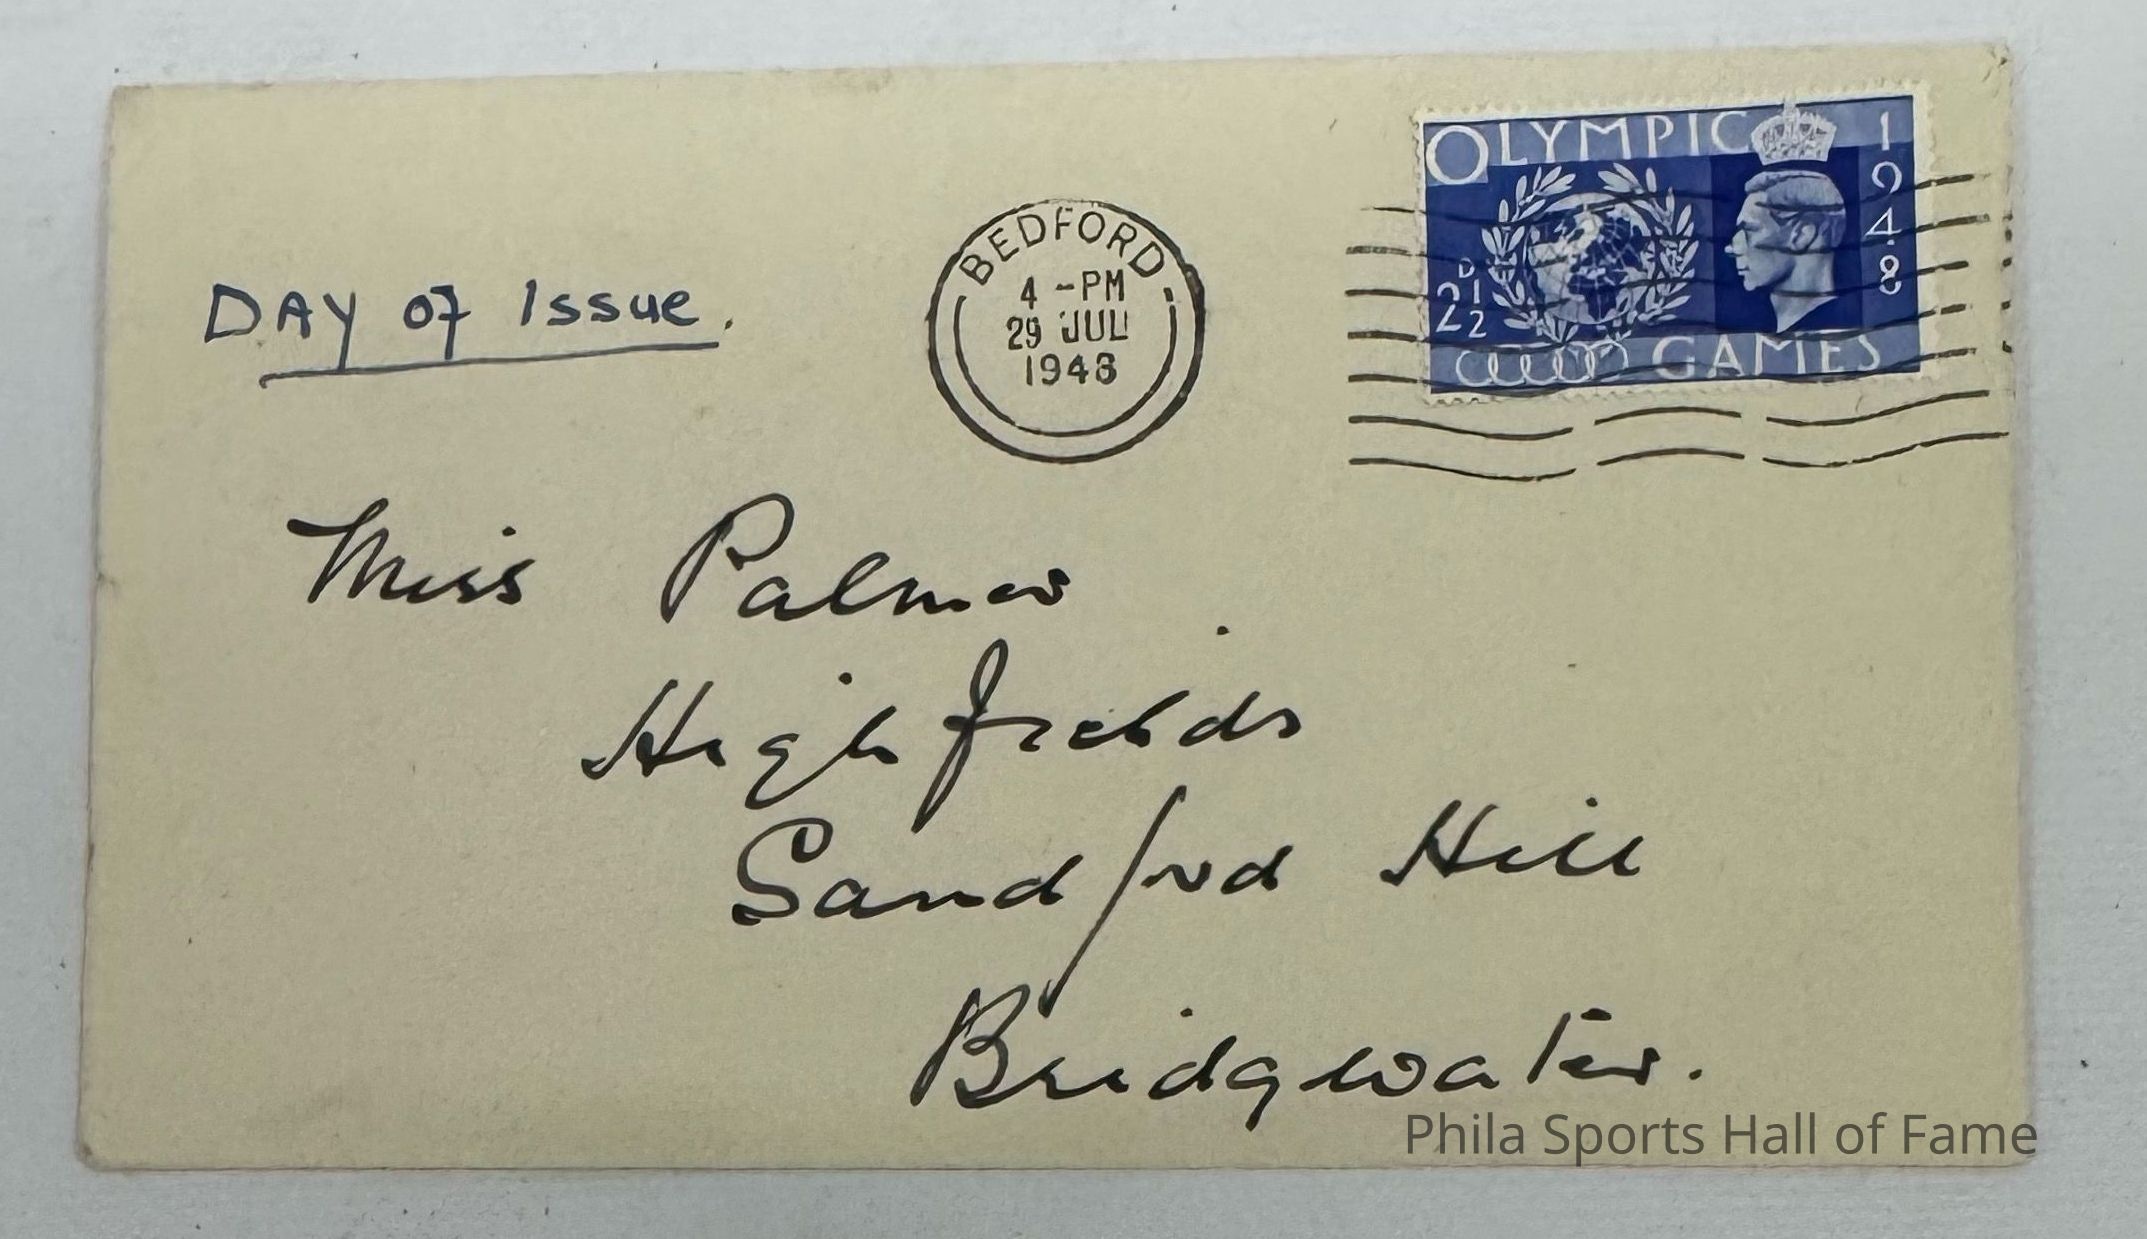 OLYMPIC 1948
2½D
GAMES
BEDFORD
4 - PM
29 JUL
1948
DAY of Issue.
Miss Palmer
Highfields
Sandford Hill
Bridgwater.
Phila Sports Hall of Fame